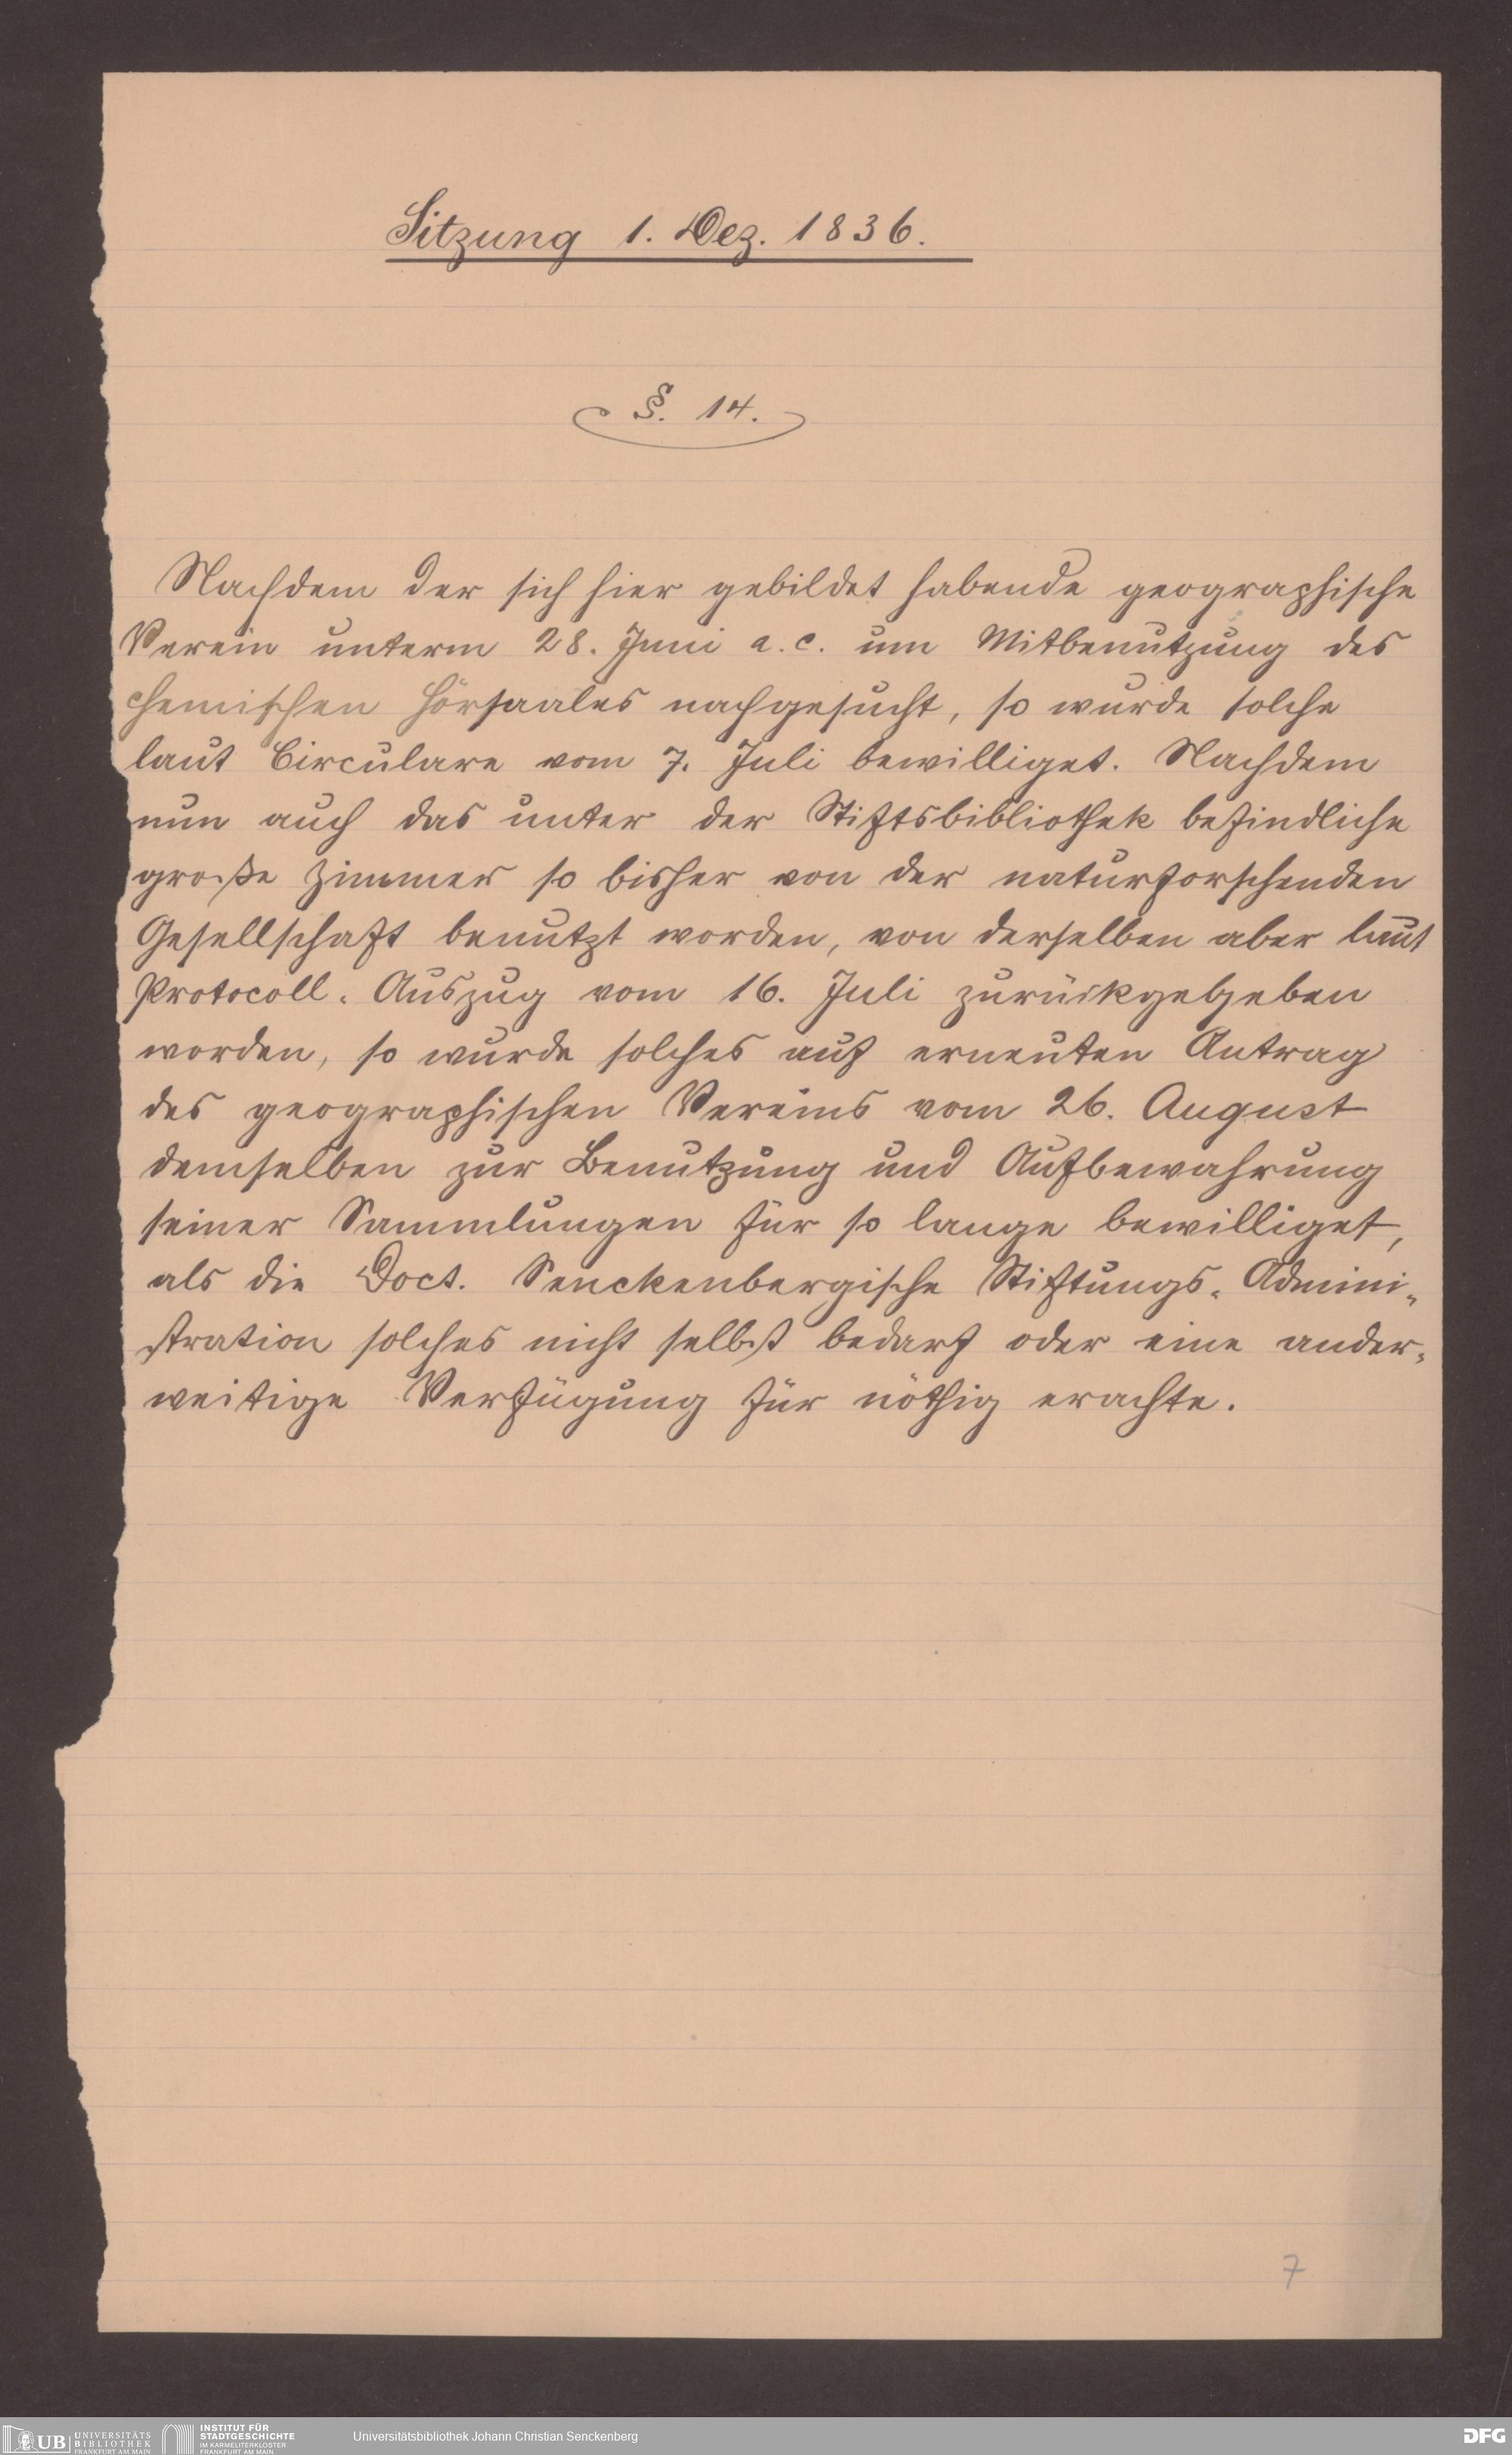 Sitzung 1. Dez. 1836.
§. 14.
Nachdem der sich hier gebildet habende geographische
Verein unterm 28. Juni a. c. um Mitbenutzung des
chemischen Hörsaales nachgesucht, so wurde solche
laut Circulare vom 7. Juli bewilliget. Nachdem
nun auch das unter der Stiftsbibliothek befindliche
große Zimmer so bisher von der naturforschenden
Gesellschaft benutzt worden, von derselben aber laut
Protocoll-Auszug vom 16. Juli zurückgegeben
worden, so wurde solches auf erneuten Antrag
des geographischen Vereins vom 26. August
demselben zur Benutzung und Aufbewahrung
seiner Sammlungen für so lange bewilliget,
als die Doct. Senckenbergische Stiftungs-Admini-
stration solches nicht selbst bedarf oder eine ander-
weitige Verfügung für nöthig erachte.
7
UB UNIVERSITÄTS
BIBLIOTHEK
FRANKFURT AM MAIN
INSTITUT FÜR
STADTGESCHICHTE
IM KARMELITERKLOSTER
FRANKFURT AM MAIN
Universitätsbibliothek Johann Christian Senckenberg
DFG